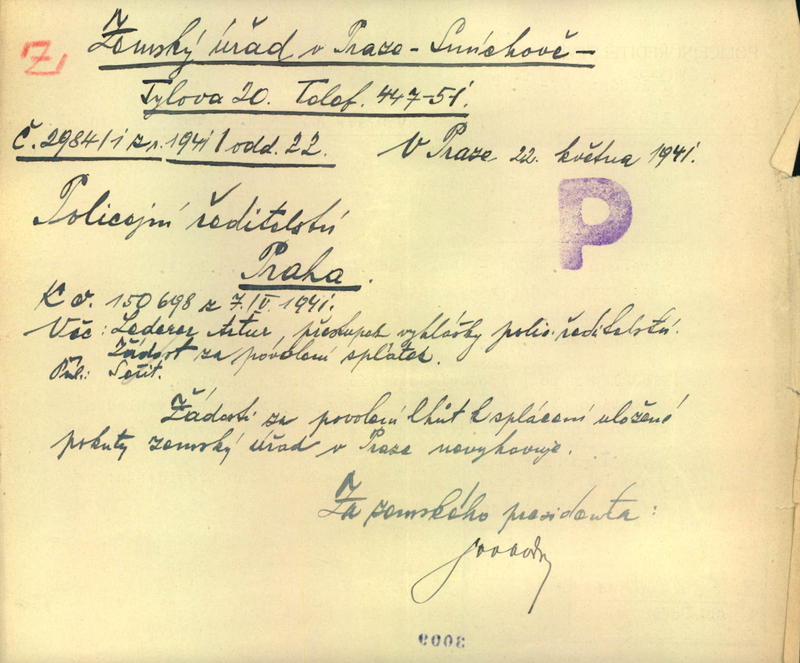 Z
Zemský úřad v Praze - Smíchově -
Tylova 20. Telef. 447-51.
Č. 2984/1 z r. 1941 odd. 22.
V Praze 22. května 1941.
Policejní ředitelství
Praha.
P
K č. 150698 z 7./IV. 1941.
Věc: Lederer Artur, přestupek vyhlášky polic. ředitelství.
Žádost za povolení splátek.
Příl.: Sešit.
Žádosti za povolení lhůt k splácení uložené
pokuty zemský úřad v Praze nevyhovuje.
Za zemského presidenta:
0008